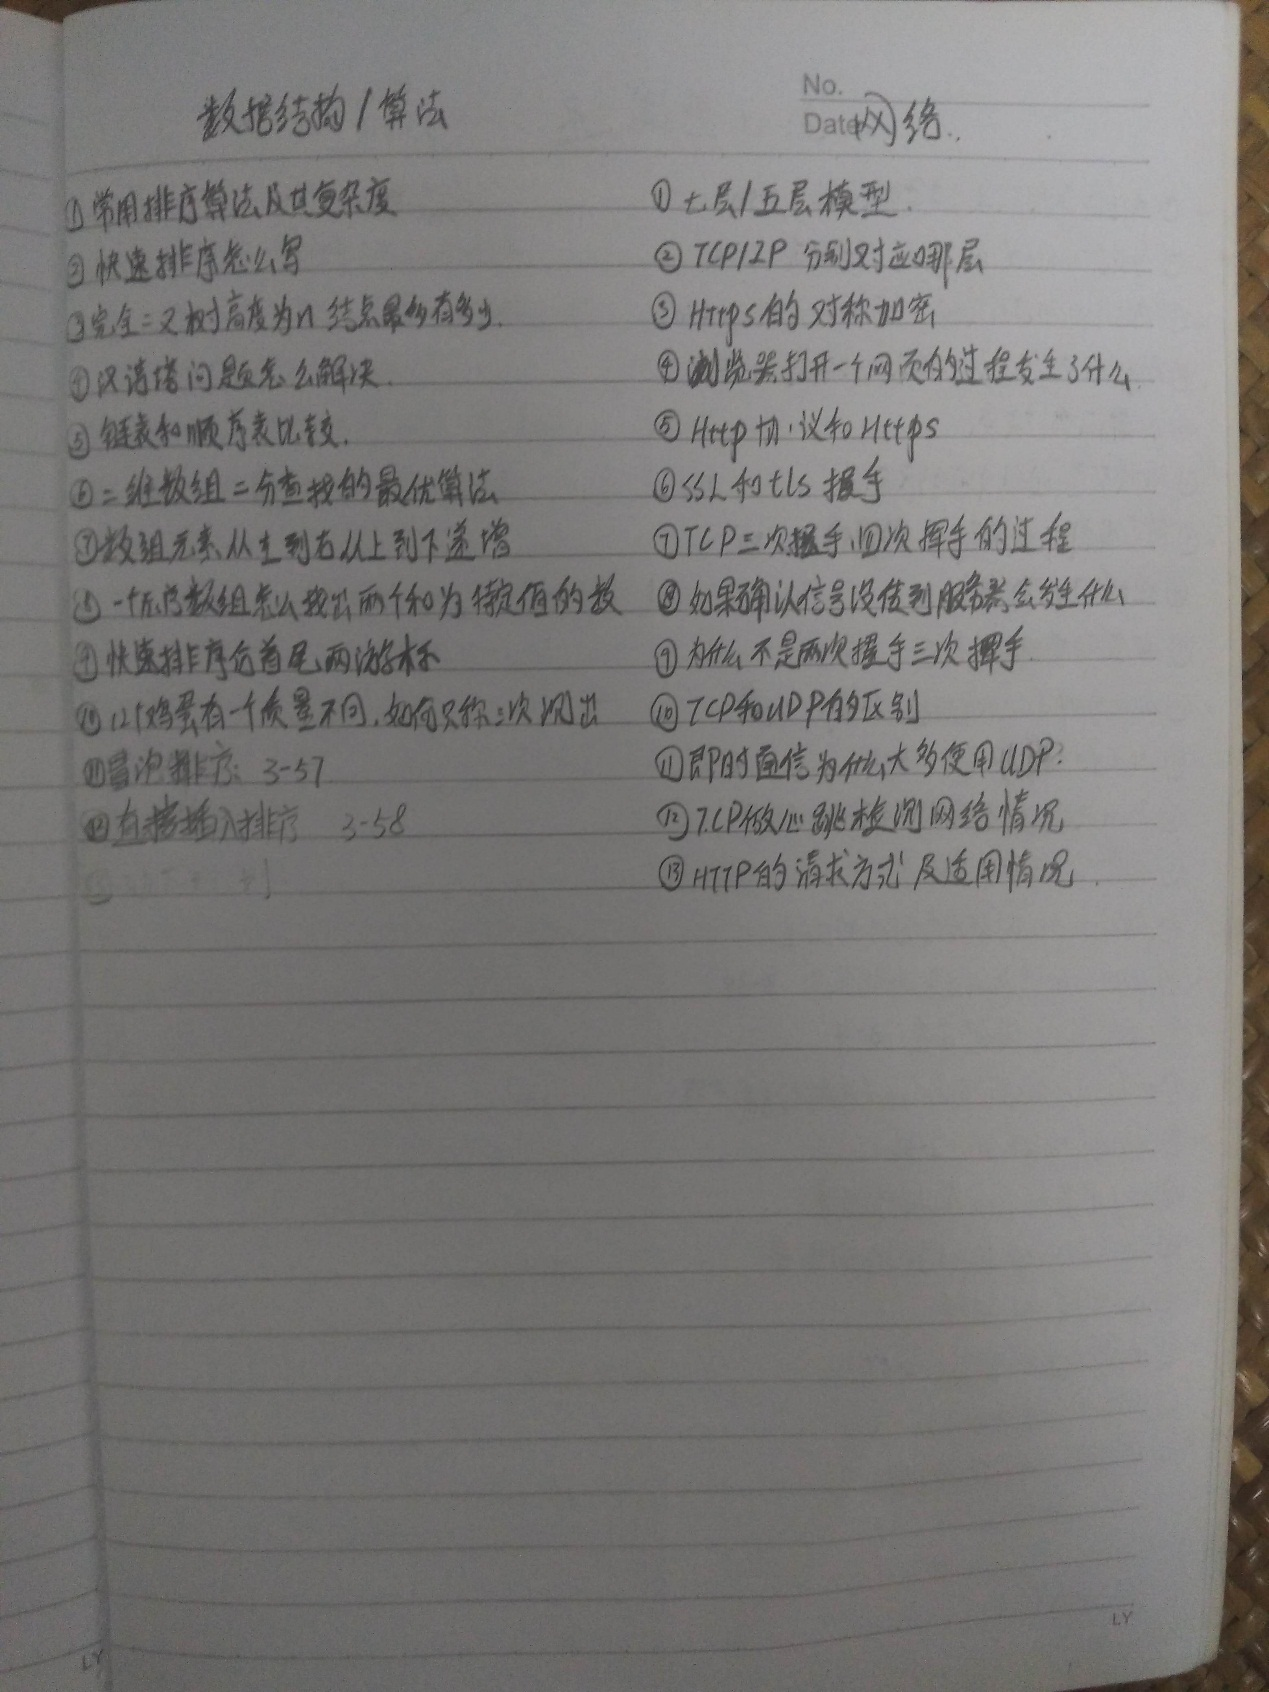 数据结构/算法
①常用排序算法及其复杂度
②快速排序怎么写
③完全二叉树高度为n 结点最多有多少.
④汉诺塔问题怎么解决.
⑤链表和顺序表比较.
⑥二维数组二分查找的最优算法
⑦数组元素从左到右从上到下递增
⑧一个有序数组怎么找出两个和为特定值的数
⑨快速排序
首尾两游标
⑩12个鸡蛋有一个质量不同,如何只称三次测出
⑪冒泡排序: 3-57
⑫直接插入排序 3-58
No.
Date
网络.
①七层/五层模型.
②TCP/IP 分别对应哪层
③Https的对称加密
④浏览器打开一个网页的过程发生了什么
⑤Http协议和Https
⑥SSL和tls握手
⑦TCP三次握手、四次挥手的过程
⑧如果确认信号没传到服务器会发生什么
⑨为什么不是两次握手三次挥手.
⑩TCP和UDP的区别
⑪即时通信为什么大多使用UDP?
⑫TCP做心跳检测网络情况
⑬HTTP的请求方式及适用情况.
LY
LY